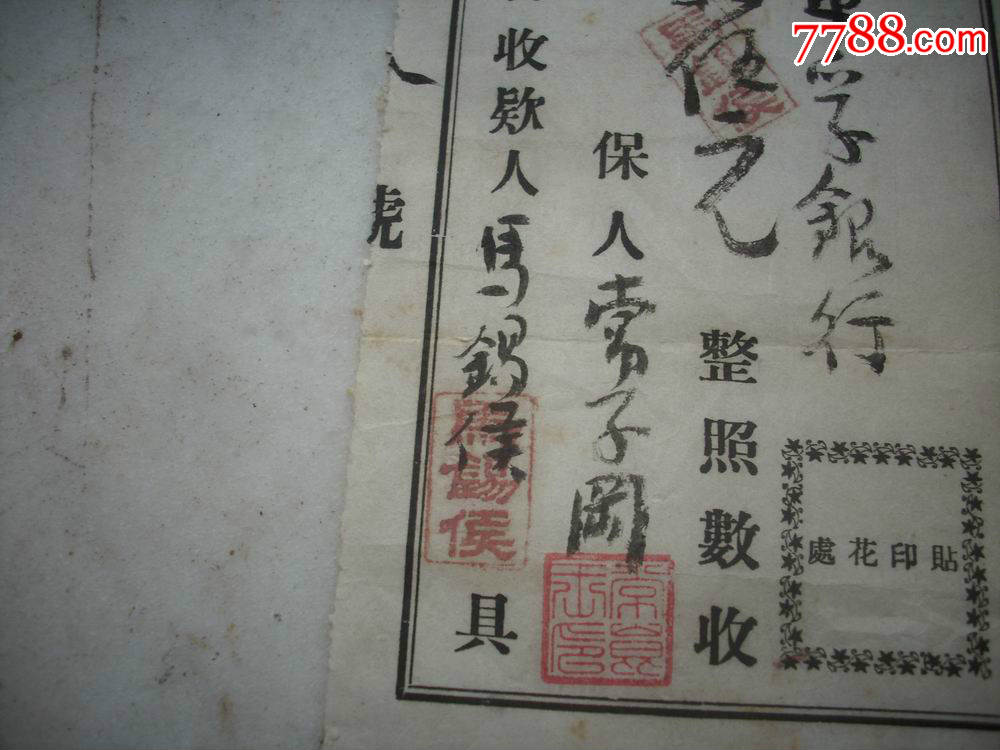 7788.com
學銀行
貼印花處
伍元整照數收
保人常子岡
收欵人馬錫侯具
馬錫侯
號